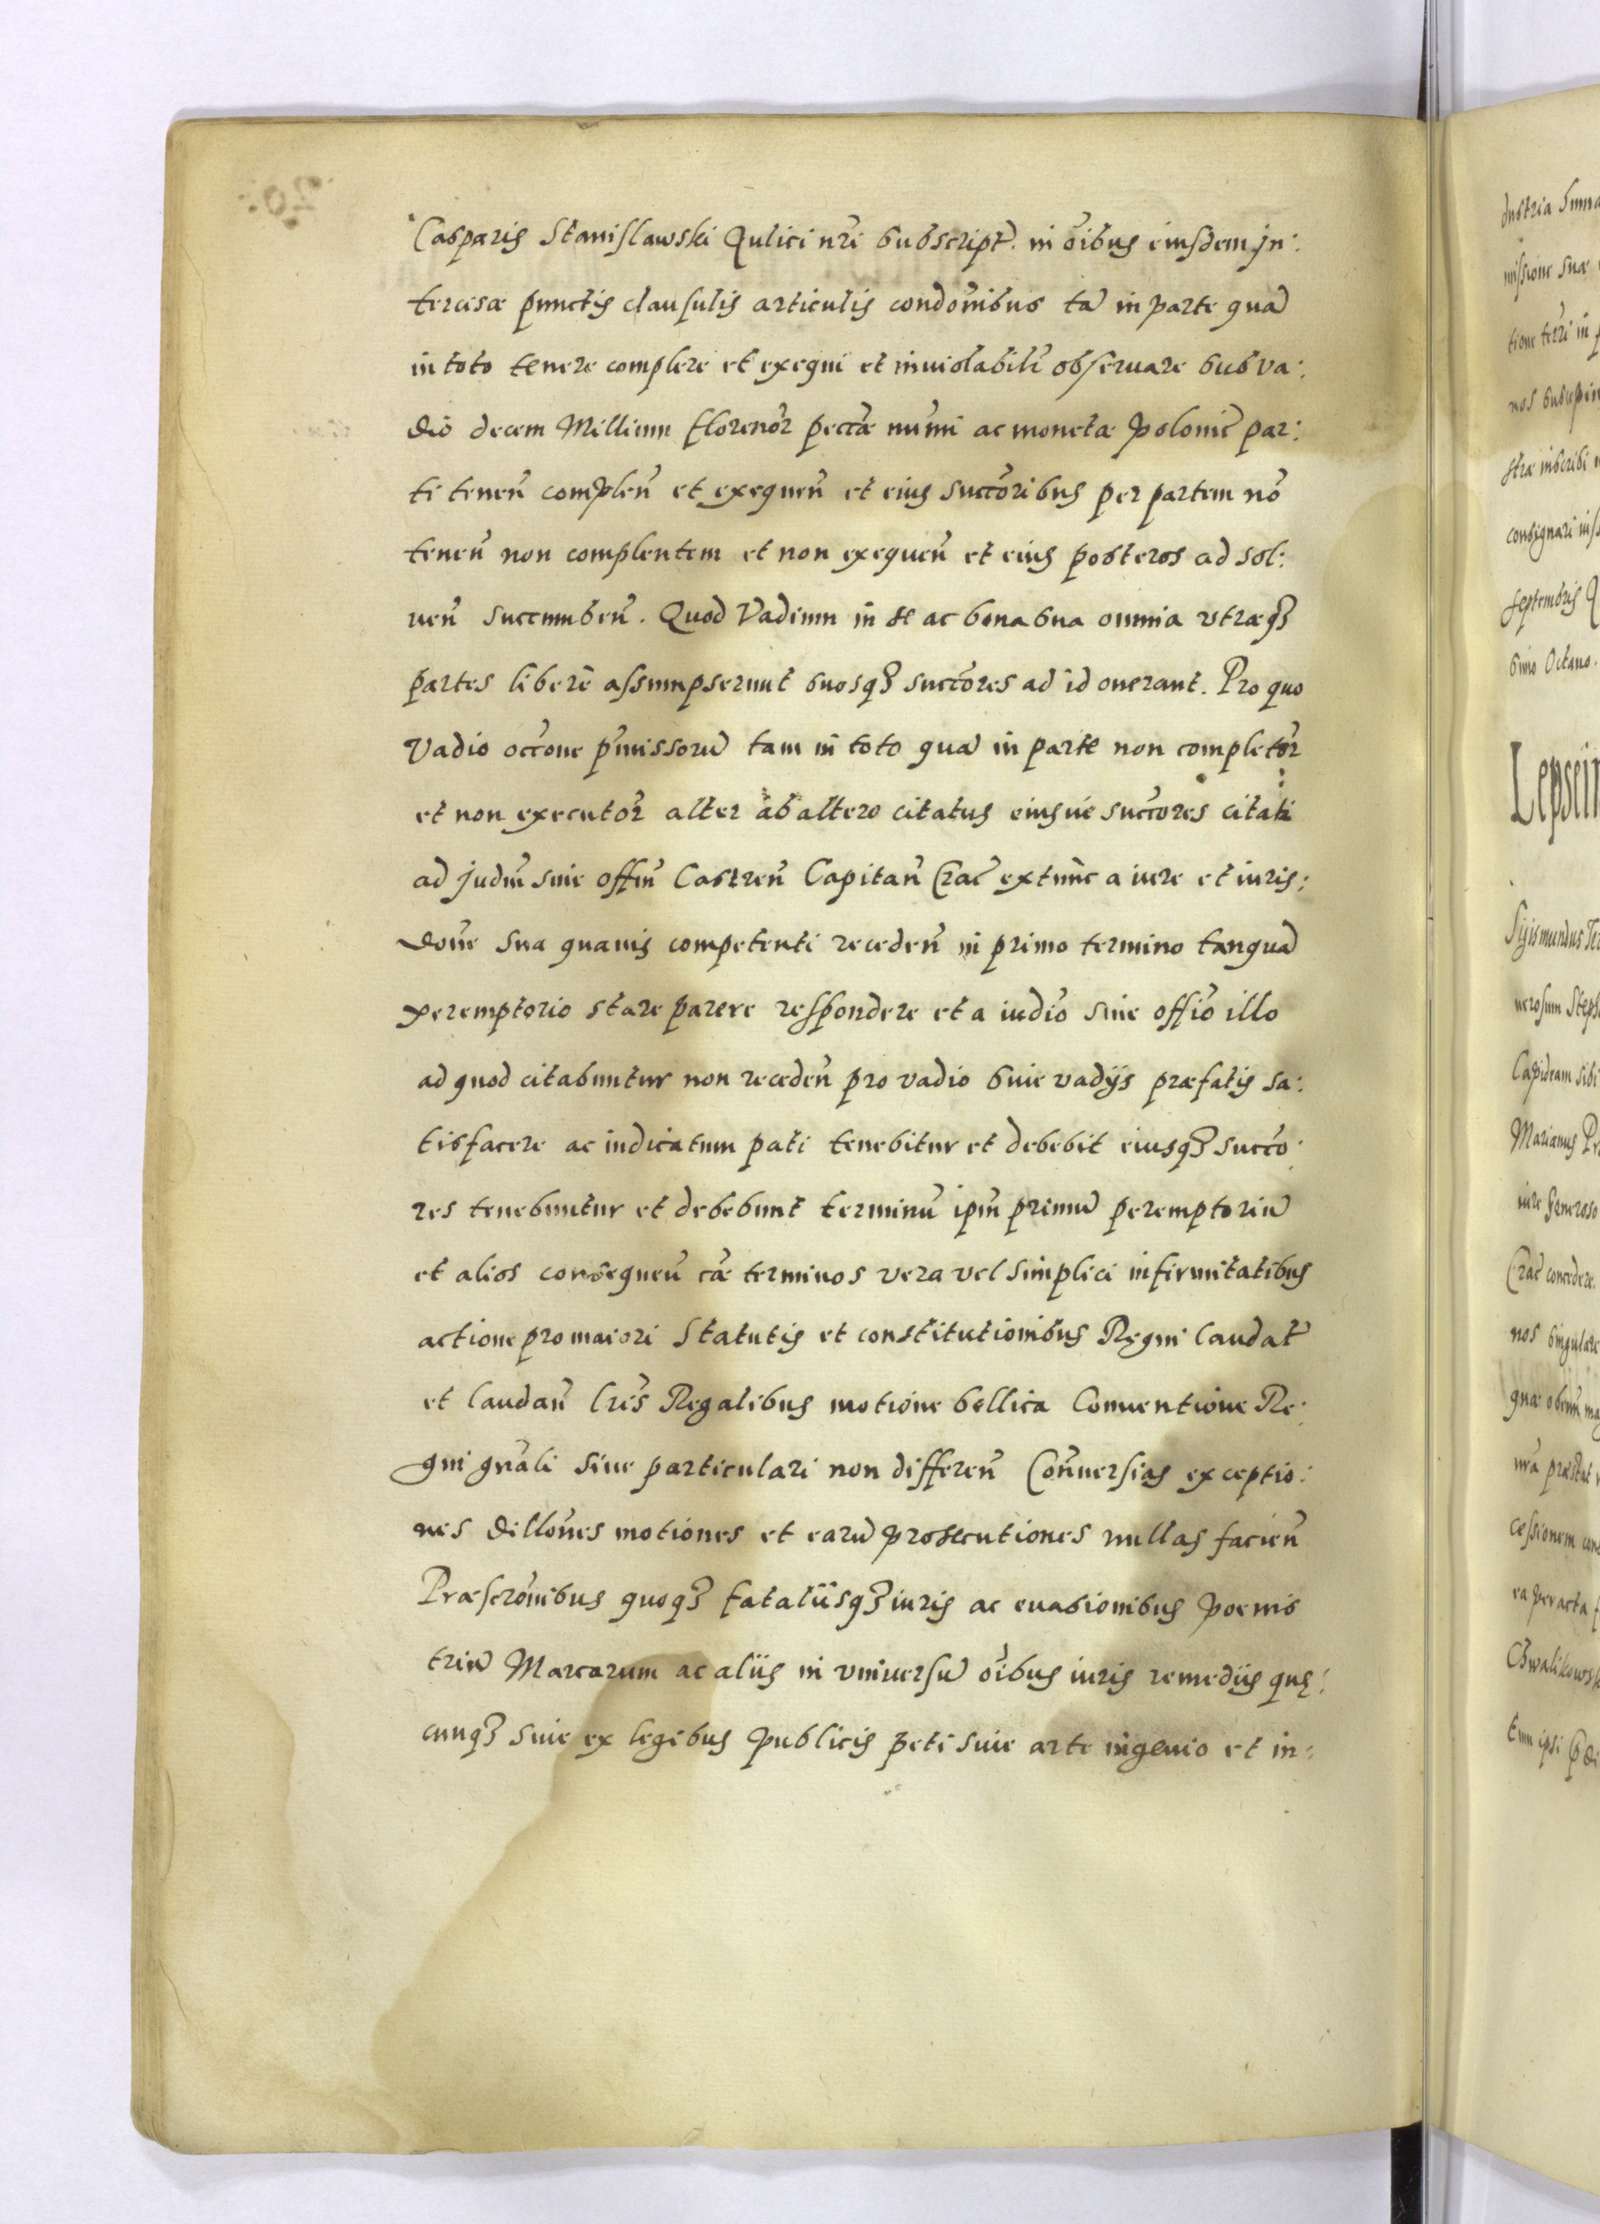 Casparis Stanislawski Aulici nri subscript. in oibus eiusdem In:
tercisæ punctis clausulis articulis condonibus tā in parte quā
in toto tenere complere et exequi et inviolabilr observare sub va:
dio decem Millium florenor peccæ numi ac monetæ Polonic par:
ti tenen complen et exequen et eius succoribus per partem nō
tenen non complentem et non exequen et eius posteros ad sol:
uen succumben. Quod Vadium in se ac bona sua omnia vtræq3
partes liberè assumpserunt suosq3 succores ad id onerant. Pro quo
Vadio occone pmissorū tam in toto quā in parte non completor
et non executor alter ab altero citatus eiusue succores citati
ad judm siue offm Castren Capitan Crac extunc a iure et iuris:
done sua quauis competenti receden in primo termino tanquā
peremptorio stare parere respondere et a iudio siue offio illo
ad quod citabuntur non receden pro vadio siue vadijs præfatis sa:
tisfacere ac iudicatum pati tenebitur et debebit eiusq3 succo:
res tenebuntur et debebunt terminū ipm primū peremptoriū
et alios consequen cæ terminos vera vel simplici infirmitatibus
actione pro maiori Statutis et constitutionibus Regni laudat
et laudan lris Regalibus motione bellica Conventione Re:
gni gnali siue particulari non differen Conversias exceptio:
nes dillones motiones et earū prosecutiones nullas facien
Præscronibus quoq3 fatalijsq3 iuris ac evasionibus poenis
triū Marcarum ac aliis in vniversū oibus iuris remedijs quę:
cunq3 siue ex legibus publicis peti siue arte ingenio et in:
Lepsein
Sigismundus Ter
Capideam sibi
Marianus Pr
iure generoso
Crac concedere.
nos singulare
cessionem con
Chwalikowsk
consignari iuss
septembris
simo Octauo.